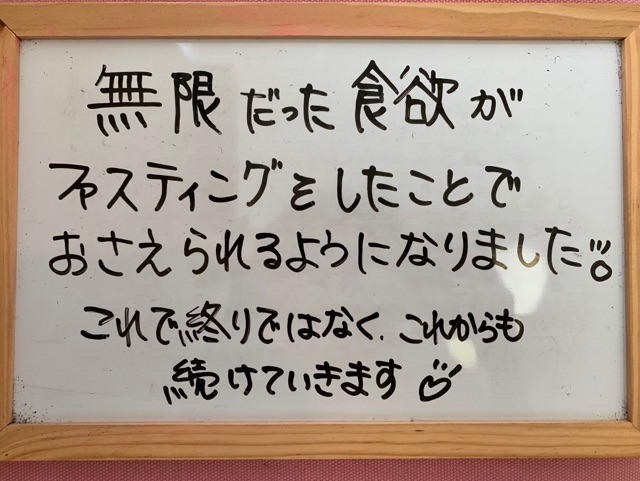 無限だった食欲が
ファスティングをしたことで
おさえられるようになりました!!
これで終りではなく、これからも
続けていきます♡